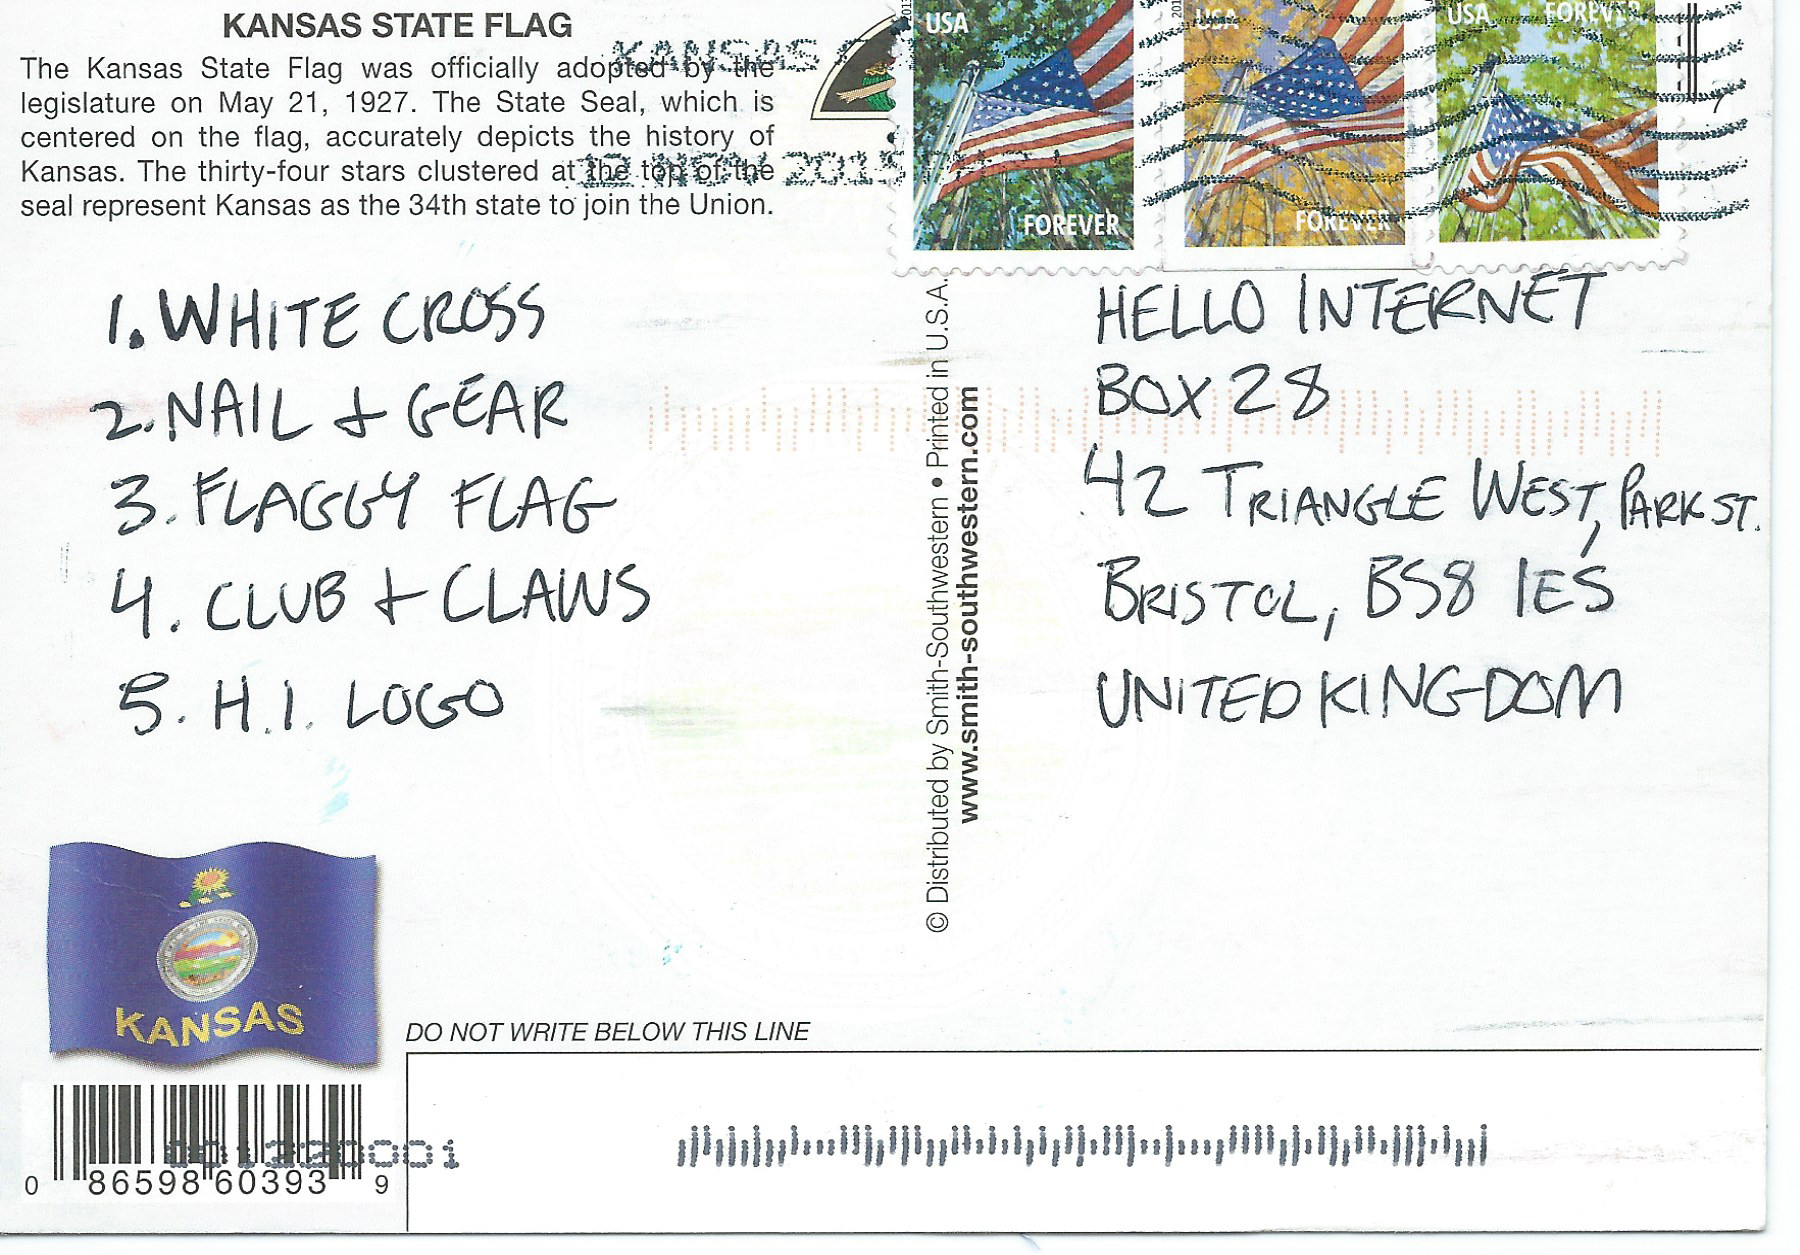 KANSAS STATE FLAG
The Kansas State Flag was officially adopted by the
legislature on May 21, 1927. The State Seal, which is
centered on the flag, accurately depicts the history of
Kansas. The thirty-four stars clustered at the top of the
seal represent Kansas as the 34th state to join the Union.
KANSAS
12 NOV 2015
USA
FOREVER
USA
FOREVER
USA FOREVER
1. WHITE CROSS
2. NAIL & GEAR
3. FLAGGY FLAG
4. CLUB & CLAWS
5. H.I. LOGO
© Distributed by Smith-Southwestern • Printed in U.S.A.
www.smith-southwestern.com
HELLO INTERNET
BOX 28
42 TRIANGLE WEST, PARK ST.
BRISTOL, BS8 1ES
UNITED KINGDOM
KANSAS
DO NOT WRITE BELOW THIS LINE
0 86598 60393 9